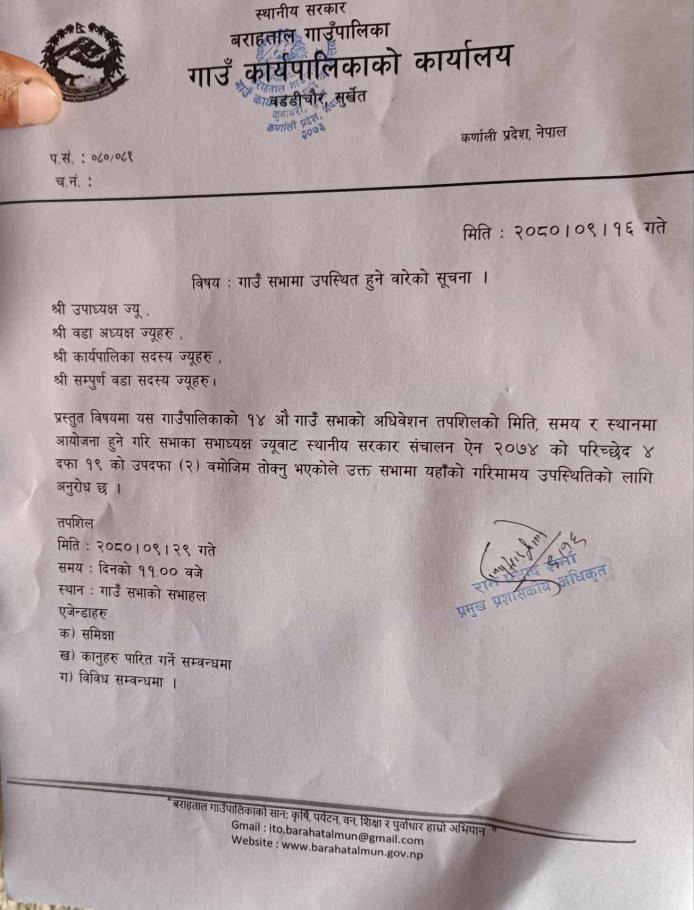 स्थानीय सरकार
बराहताल गाउँपालिका
गाउँ कार्यपालिकाको कार्यालय
बडडीचौर, सुर्खेत
कर्णाली प्रदेश,
२०७३
कर्णाली प्रदेश, नेपाल
प.सं. : ०८०/०८१
च.नं. :
मिति : २०८०।०९।१६ गते
विषय : गाउँ सभामा उपस्थित हुने वारेको सूचना ।
श्री उपाध्यक्ष ज्यू ,
श्री वडा अध्यक्ष ज्यूहरु ,
श्री कार्यपालिका सदस्य ज्यूहरु ,
श्री सम्पुर्ण वडा सदस्य ज्यूहरु।
प्रस्तुत विषयमा यस गाउँपालिकाको १४ औ गाउँ सभाको अधिवेशन तपशिलको मिति, समय र स्थानमा
आयोजना हुने गरि सभाका सभाध्यक्ष ज्यूवाट स्थानीय सरकार संचालन ऐन २०७४ को परिच्छेद ४
दफा १९ को उपदफा (२) वमोजिम तोक्नु भएकोले उक्त सभामा यहाँको गरिमामय उपस्थितिको लागि
अनुरोध छ ।
तपशिल
मिति : २०८०।०९।२९ गते
समय : दिनको ११.०० वजे
स्थान : गाउँ सभाको सभाहल
एजेन्डाहरु
क) समिक्षा
ख) कानुहरु पारित गर्ने सम्वन्धमा
ग) विविध सम्वन्धमा ।
राम प्रसाद शर्मा
प्रमुख प्रशासकीय अधिकृत
"बराहताल गाउँपालिकाको सान: कृषि, पर्यटन, वन, शिक्षा र पुर्वाधार हाम्रो अभियान "
Gmail : ito.barahatalmun@gmail.com
Website : www.barahatalmun.gov.np